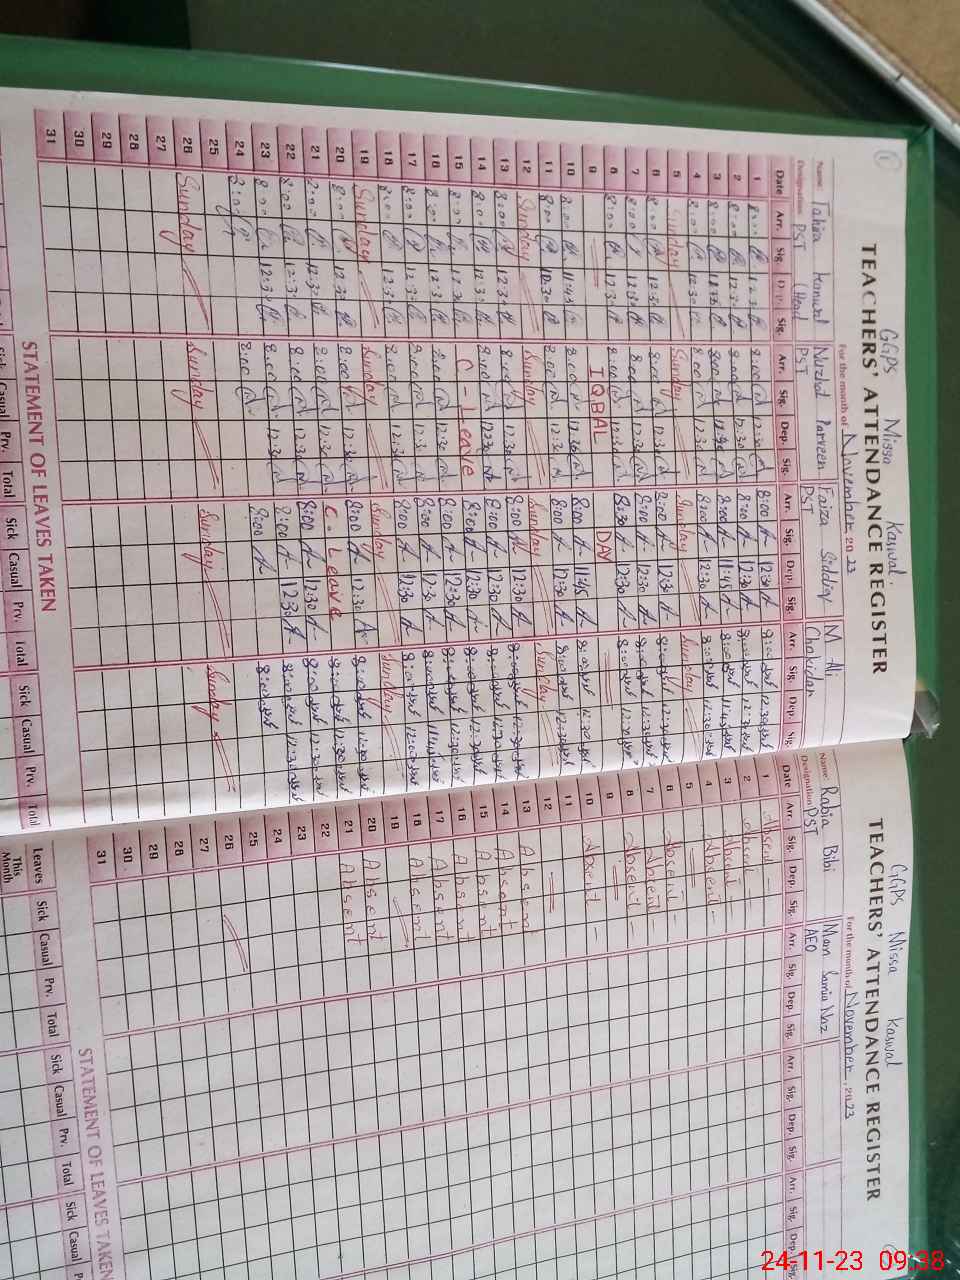 GGPS Missa Kaswal.
TEACHERS' ATTENDANCE REGISTER
For the month of November 2023
Name: Tahira Kanwal Nuzhat Parveen Faiza Siddiq M Ali
Designation PST (Head PST PST Chokidar
Date Arr. Sig. Dep. Sig. Arr. Sig. Dep. Sig. Arr. Sig. Dep. Sig. Arr. Sig. Dep. Sig.
1 8:00 12:30 8:00 12:30 8:00 12:30 8:00 12:30
2 8:00 12:30 8:00 12:30 8:00 12:30 8:00 12:30
3 8:00 8:00 8:00 11:45 8:00 11:45
4 8:00 12:30 8:00 12:30 8:00 12:30 8:00 12:30
5 Sunday Sunday Sunday Sunday
6 8:00 12:30 8:00 12:30 8:00 12:30 8:00 12:30
7 8:00 12:30 8:00 12:30 8:00 12:30 8:00 12:30
8 8:00 12:30 8:00 12:30 8:30 12:30 8:00 12:30
9 IQBAL DAY
10 8:00 11:45 8:00 8:00 11:45 8:00 12:30
11 8:00 8:00 12:30 8:00 12:30 8:00 12:30
12 Sunday Sunday Sunday Sunday
13 8:00 12:30 8:00 12:30 8:00 12:30 8:00 12:30
14 8:00 12:30 8:00 12:30 8:00 12:30 8:00
15 8:00 12:30 C-Leave 8:00 12:30 8:00 12:30
16 8:00 12:30 8:00 12:30 8:00 12:30 8:00 12:30
17 8:00 12:30 8:00 12:30 8:00 12:30 8:00
18 8:00 12:30 8:00 12:30 8:00 12:30 8:00 12:00
19 Sunday Sunday Sunday Sunday
20 8:00 12:30 8:00 12:30 8:00 12:30 8:00 12:30
21 8:00 12:30 8:00 12:30 C. Leave 8:00 12:30
22 8:00 12:30 8:00 12:30 8:00 12:30 8:00 12:30
23 8:00 12:30 8:00 12:30 8:00 12:30 8:00 12:30
24 8:00 8:00 8:00 8:00
25
26 Sunday Sunday Sunday Sunday
27
28
29
30
31
STATEMENT OF LEAVES TAKEN
Sick Casual Prv. Total Sick Casual Prv. Total Sick Casual Prv. Total
GGPS Missa Kaswal
TEACHERS' ATTENDANCE REGISTER
For the month of November, 2023
Name: Rabia Bibi Mam Samia Naz
Designation PST AEO
Date Arr. Sig. Dep. Sig. Arr. Sig. Dep. Sig. Arr. Sig. Dep. Sig. Arr. Sig. Dep. Sig.
1 Absent
2 Absent
3 Absent
4 Absent
5
6 Absent
7 Absent
8 Absent
9
10 Absent
11
12
13 Absent
14 Absent
15 Absent
16 Absent
17 Absent
18 Absent
19
20 Absent
21 Absent
22
23
24
25
26
27
28
29
30
31
STATEMENT OF LEAVES TAKEN
Leaves Sick Casual Prv. Total Sick Casual Prv. Total Sick Casual
This
Month
24-11-23 09:38